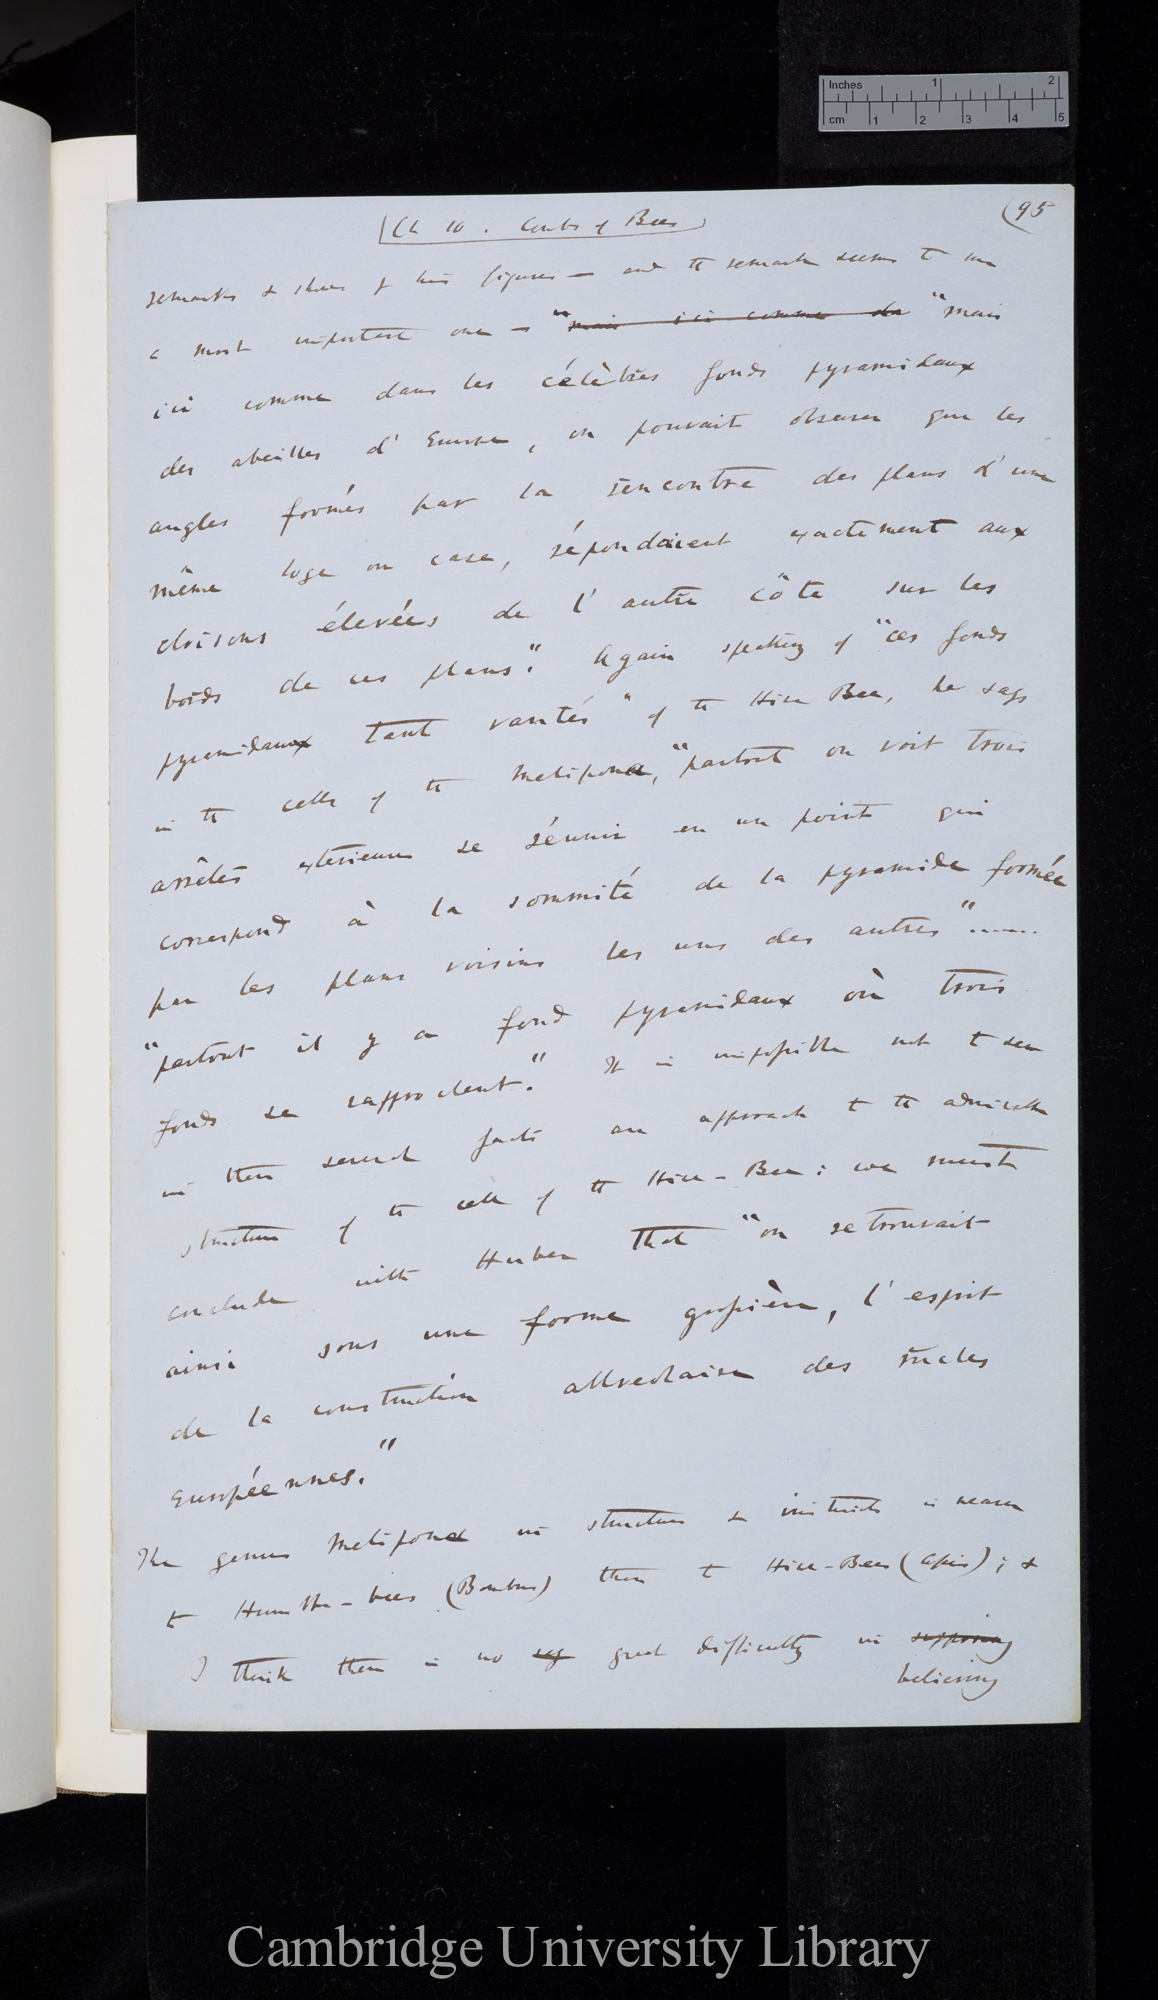 Inches 1 2
cm 1 2 3 4 5
(95
Ch 10. Combs of Bees
remarks & shows by his figures — and the remark seems to me
a most important one — "mais ici comme da "mais
ici comme dans les célèbres fonds pyramidaux
des abeilles d'Europe, on pouvait observer que les
angles formés par la rencontre des plans d'une
même loge ou case, répondaient exactement aux
cloisons élevées de l'autre côté sur les
bords de ces plans". Again speaking of "ces fonds
pyramidaux tant vantés" of the Hive Bee, he says
in the cells of the Melipona, "partout on voit trois
arrêtes extérieures se réunir en un point qui
correspond à la sommité de la pyramide formée
par les plans voisins les uns des autres"......
"partout il y a fond pyramidaux où trois
fonds se rapprochent." It is impossible not to see
in these several facts an approach to the admirable
structure of the cell of the Hive-Bee: we must
conclude with Huber that "on retrouvait
ainsi sous une forme grossière, l'esprit
de la construction allveolaire des ruches
européennes."
The genus Melipona in structure & instincts is nearer
to Humble-bees (Bombus) than to Hive-Bees (Apis); &
I think there is no great difficulty in supposing
believing
Cambridge University Library